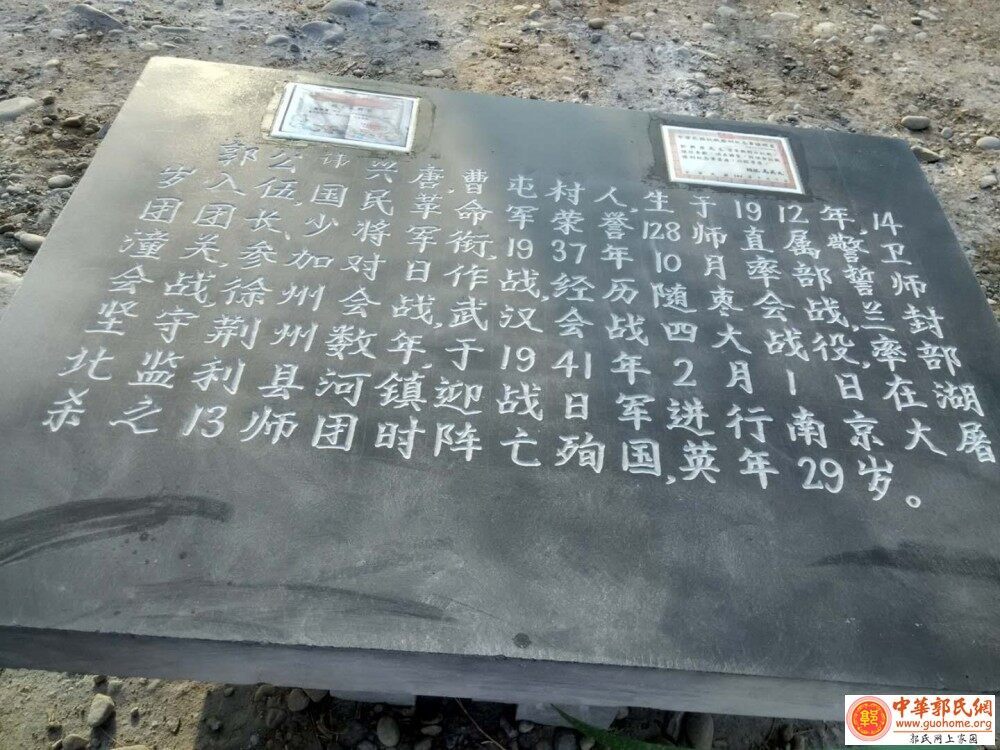 郭公讳兴唐,曹屯村人,生于1912年,14
岁入伍,国民革命军荣誉128师直属警卫
团团长、少将军衔,1937年10月率部誓师
潼关参加对日作战,经历随枣会战,兰封
会战徐州会战,武汉会战四大战役,率部
坚守荆州数年,于1941年2月1日在湖
北监利县河镇迎战日军进行南京大屠
杀之13师团时阵亡殉国,英年29岁。
中華郭氏網
www.guohome.org
郭氏网上家园